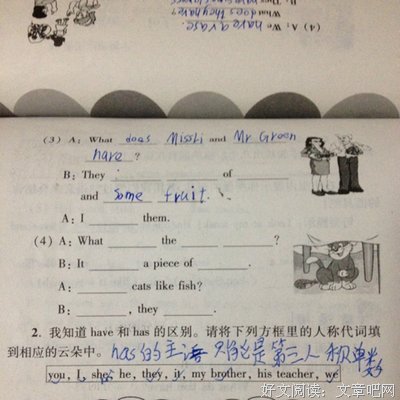 (4) A: We have a vase.
What does they have?
(3) A: What does MissLi and Mr Green
have ?
B: They ______ ______ of ______
and some fruit.
A: I ______ them.
(4) A: What ______ the ______ ______?
B: It ______ a piece of ______.
A: ______ cats like fish?
B: ______, they ______.
2. 我知道 have 和 has 的区别。请将下列方框里的人称代词填
到相应的云朵中。 has的主语 只能是第三人称单数
you, I, she, he, they, it, my brother, his teacher, we
好文阅读：文章吧网